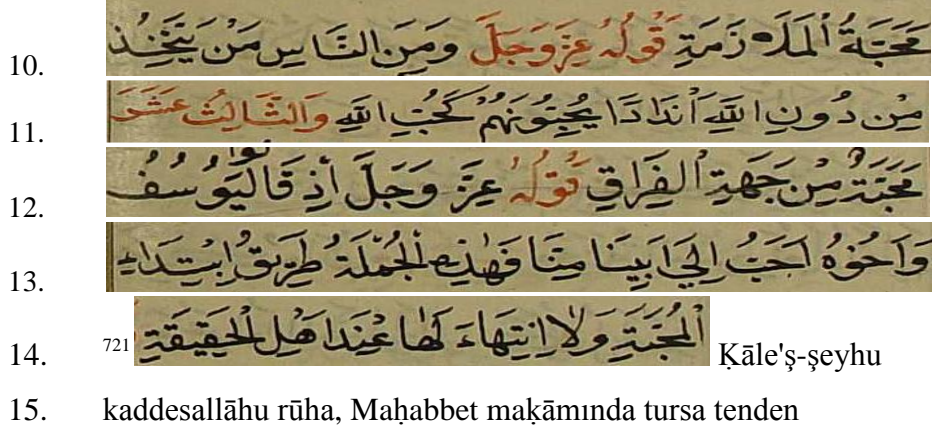 10. مَحَبَّةُ الْمَلَاۤ زَمَةِ قَوْلُهُ عَزَّ وَجَلَّ وَمِنَ النَّاسِ مَنْ يَتَّخِذُ
11. مِنْ دُونِ اللّٰهِ اَنْدَادًا يُحِبُّونَهُمْ كَحُبِّ اللّٰهِ وَالثَّالِثُ عَشَرَ
12. مَحَبَّةٌ مِنْ جَهَةِ الْفِرَاقِ قَوْلُهُ عَزَّ وَجَلَّ اِذْ قَالُوا لَيُوسُفُ
13. وَاَخُوهُ اَحَبُّ اِلٰى اَبِينَا مِنَّا فَهٰذِهِ الْجُمْلَةُ طَرِيقُ ابْتِدَاءِ
14. 721 الْمُحَبَّةِ وَلَا اِنْتِهَاءَ لَهَا عِنْدَ اَهْلِ الْحَقِيقَةِ Ḳāle'ş-şeyhu
15. kaddesallāhu rūha, Maḥabbet maḳāmında tursa tenden